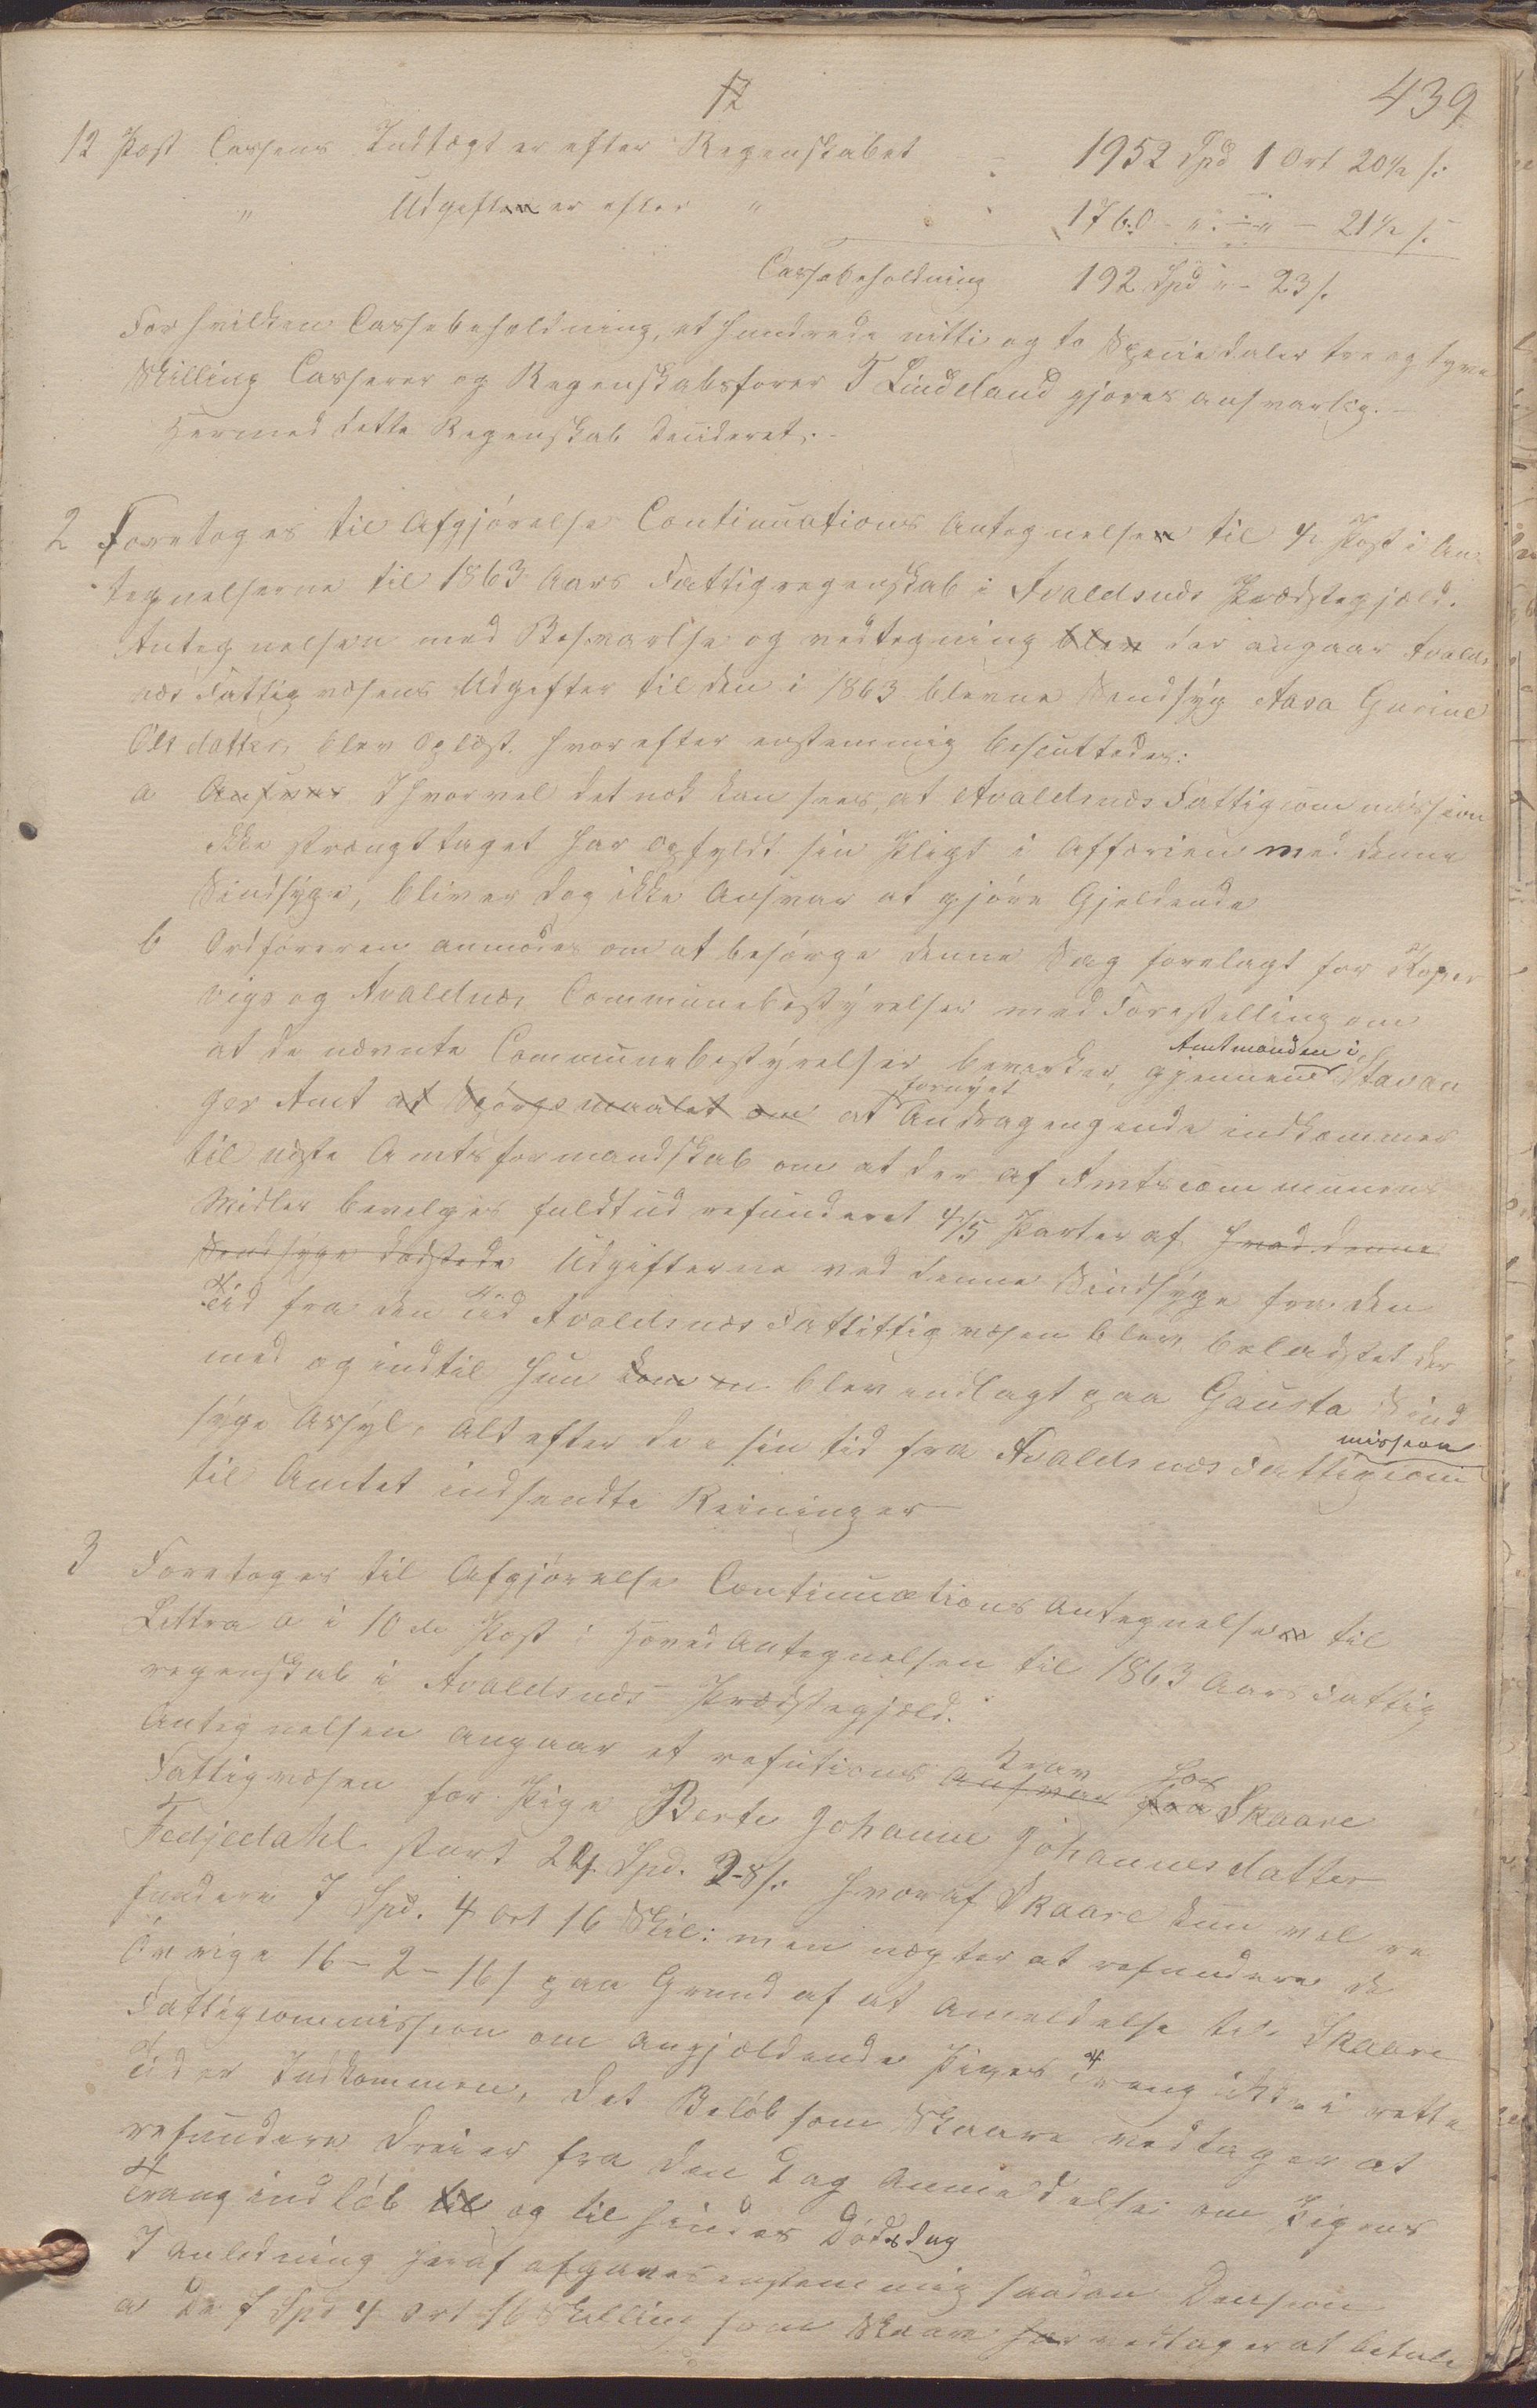 12
439
12 Post Cassens Indtægt er efter Regenskabet 1952 Spd 1 Ort 20½ s:
" Udgiften er efter " 1760 - " - " - 21½ s.
Cassabeholdning 192 Spd " - 23 s.
For hvilken Cassebeholdning, et hundrede nitti og to Speciedaler tre og tyve
Skilling Casserer og Regenskabsfører T Lindeland gjøres ansvarlig. -
Hermed dette Regenskab decideret. -
2 Foretoges til Afgjørelse Continuations Antegnelsen til 4 Post i An-
tegnelserne til 1863 Aars Fattigregenskab i Avaldsnæs Prædstegjæld.
Antegnelsen med Besvarelse og vedtegning blev der angaar Avalds
næs Fattigvæsens Udgifter til den i 1863 blevne Sindsyg Aasa Gurine
Olsdatter, blev Oplæst. hvorefter enstemmig besluttedes:
a Ansvar Ihvorvel det nok kan sees, at Avaldsnæs Fattigcommission
ikke strængt taget har opfyldt sin Pligt i Affærien med denne
Sindsyge, bliver dog ikke Ansvar at gjøre Gjeldende
b Ordføreren anmodes om at besørge denne Sag forelagt for Koper
vigs og Avaldsnæs Communebestyrelser med Forestilling om
at de nævnte Communebestyrelser bevirker, gjennem Amtmanden i Stavan
ger Amt at Spørgsmaalet om at fornyet Andragengende indkommer
til næste Amtsformandskab om at der af Amtscommunens
Midler bevelges fuldtud refunderet 4/5 Parter af hvad denne
Sindsyge kostede Udgifterne ved denne Sindsyge fra den
Tid fra den tid Avaldsnæs Fattittigvæsen blev beladstet der
med og indtil hun kom in blev indlagt paa Gausta Sind
syge Assyl, Alt efter de i sin tid fra Avaldsnæs Fattigcom
mission
til Amtet indsendte Reininger
3 Foretoges til Afgjørelse Continuations Antegnelsen til
Littra a i 10de Post i Hoved Antegnelsen til 1863 Aars Fattig
regenskab i Avaldsnæs Prædstegjæld.
Antegnelsen angaar et refutions Ansvar Krav fra hos Skaare
Fattigvæsen for Pige Berte Johanne Johannesdatter
Fedjedahl stort 24 Spd. 3-8 s: hvoraf Skaare kun vel re
fundere 7 Spd. 4 Ort 16 Skil: men negter at refundere de
Øvrige 16 - 2 - 16 s paa Grund af at Anmeldelse til Skaare
Fattigcommission om angjældende Piges Trang ikke i rette
tid er Indkommen, det Beløb som Skaare vedtager at
refundere dreier fra den Dag Anmeldelse om Pigens
Trang indløb til og til hindes Dødsdag
I Anledning heraf afgaves enstemmig saadan Desision
a De 7 Spd 4 Ort 16 Skilling som Skaare har vedtager at betale